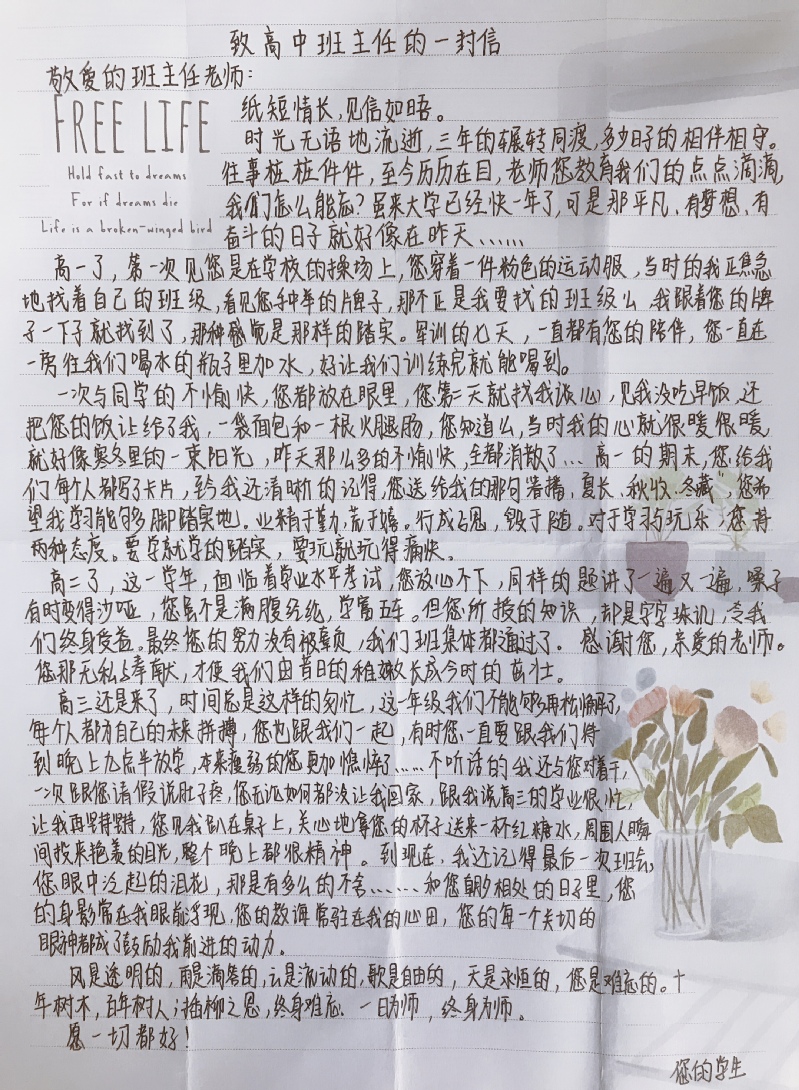 致高中班主任的一封信
敬爱的班主任老师:
FREE LIFE
Hold fast to dreams
For if dreams die
Life is a broken-winged bird
纸短情长,见信如晤。
时光无语地流逝,三年的辗转同渡,多少日子的相伴相守。
往事桩桩件件,至今历历在目,老师您教育我们的点点滴滴,
我们怎么能忘?虽来大学已经快一年了,可是那平凡、有梦想、有
奋斗的日子就好像在昨天……
高一了,第一次见您是在学校的操场上,您穿着一件粉色的运动服,当时的我正焦急
地找着自己的班级,看见您手中举的牌子,那不正是我要找的班级么,我跟着您的牌
子一下子就找到了,那种感觉是那样的踏实。军训的七天,一直都有您的陪伴,您一直在
一旁往我们喝水的瓶子里加水,好让我们训练完就能喝到。
一次与同学的不愉快,您都放在眼里,您第二天就找我谈心,见我没吃早饭,还
把您的饭让给了我,一袋面包和一根火腿肠,您知道么,当时我的心就很暖很暖,
就好像寒冬里的一束阳光,昨天那么多的不愉快,全都消散了…高一的期末,您给我
们每个人都写了卡片,至今我还清晰的记得,您送给我的那句"春播、夏长、秋收、冬藏",您希
望我学习能够多脚踏实地。业精于勤,荒于嬉。行成于思,毁于随。对于学习与玩乐,您持
两种态度。要学就学的踏实,要玩就玩得痛快。
高二了,这一学年,面临着学业水平考试,您放心不下,同样的题讲了一遍又一遍,嗓子
有时变得沙哑,您虽不是满腹经纶,学富五车。但您所授的知识,都是字字珠玑,令我
们终身受益。最终您的努力没有被辜负,我们班集体都通过了。感谢您,亲爱的老师。
您那无私的奉献,才使我们由昔日的稚嫩长成今时的茁壮。
高三还是来了,时间总是这样的匆忙,这一年级我们不能够再松懈了,
每个人都为自己的未来拼搏,您也跟我们一起,有时您一直要跟我们待
到晚上九点半放学,本来瘦弱的您更加憔悴了……不听话的我还与您对着干,
一次跟您请假说肚子疼,您无论如何都没让我回家,跟我说高三的学业很忙,
让我再坚持坚持,您见我趴在桌子上,关心地拿您的杯子送来一杯红糖水,周围人瞬
间投来艳羡的目光,整个晚上都很精神。到现在,我还记得最后一次班会,
您眼中泛起的泪花,那是有多么的不舍……和您朝夕相处的日子里,您
的身影常在我眼前浮现,您的教诲常驻在我的心田,您的每一个关切的
眼神都成了鼓励我前进的动力。
风是透明的,雨是滴答的,云是流动的,歌是自由的,天是永恒的,您是难忘的。十
年树木,百年树人;插柳之恩,终身难忘。一日为师,终身为师。
愿一切都好!
您的学生